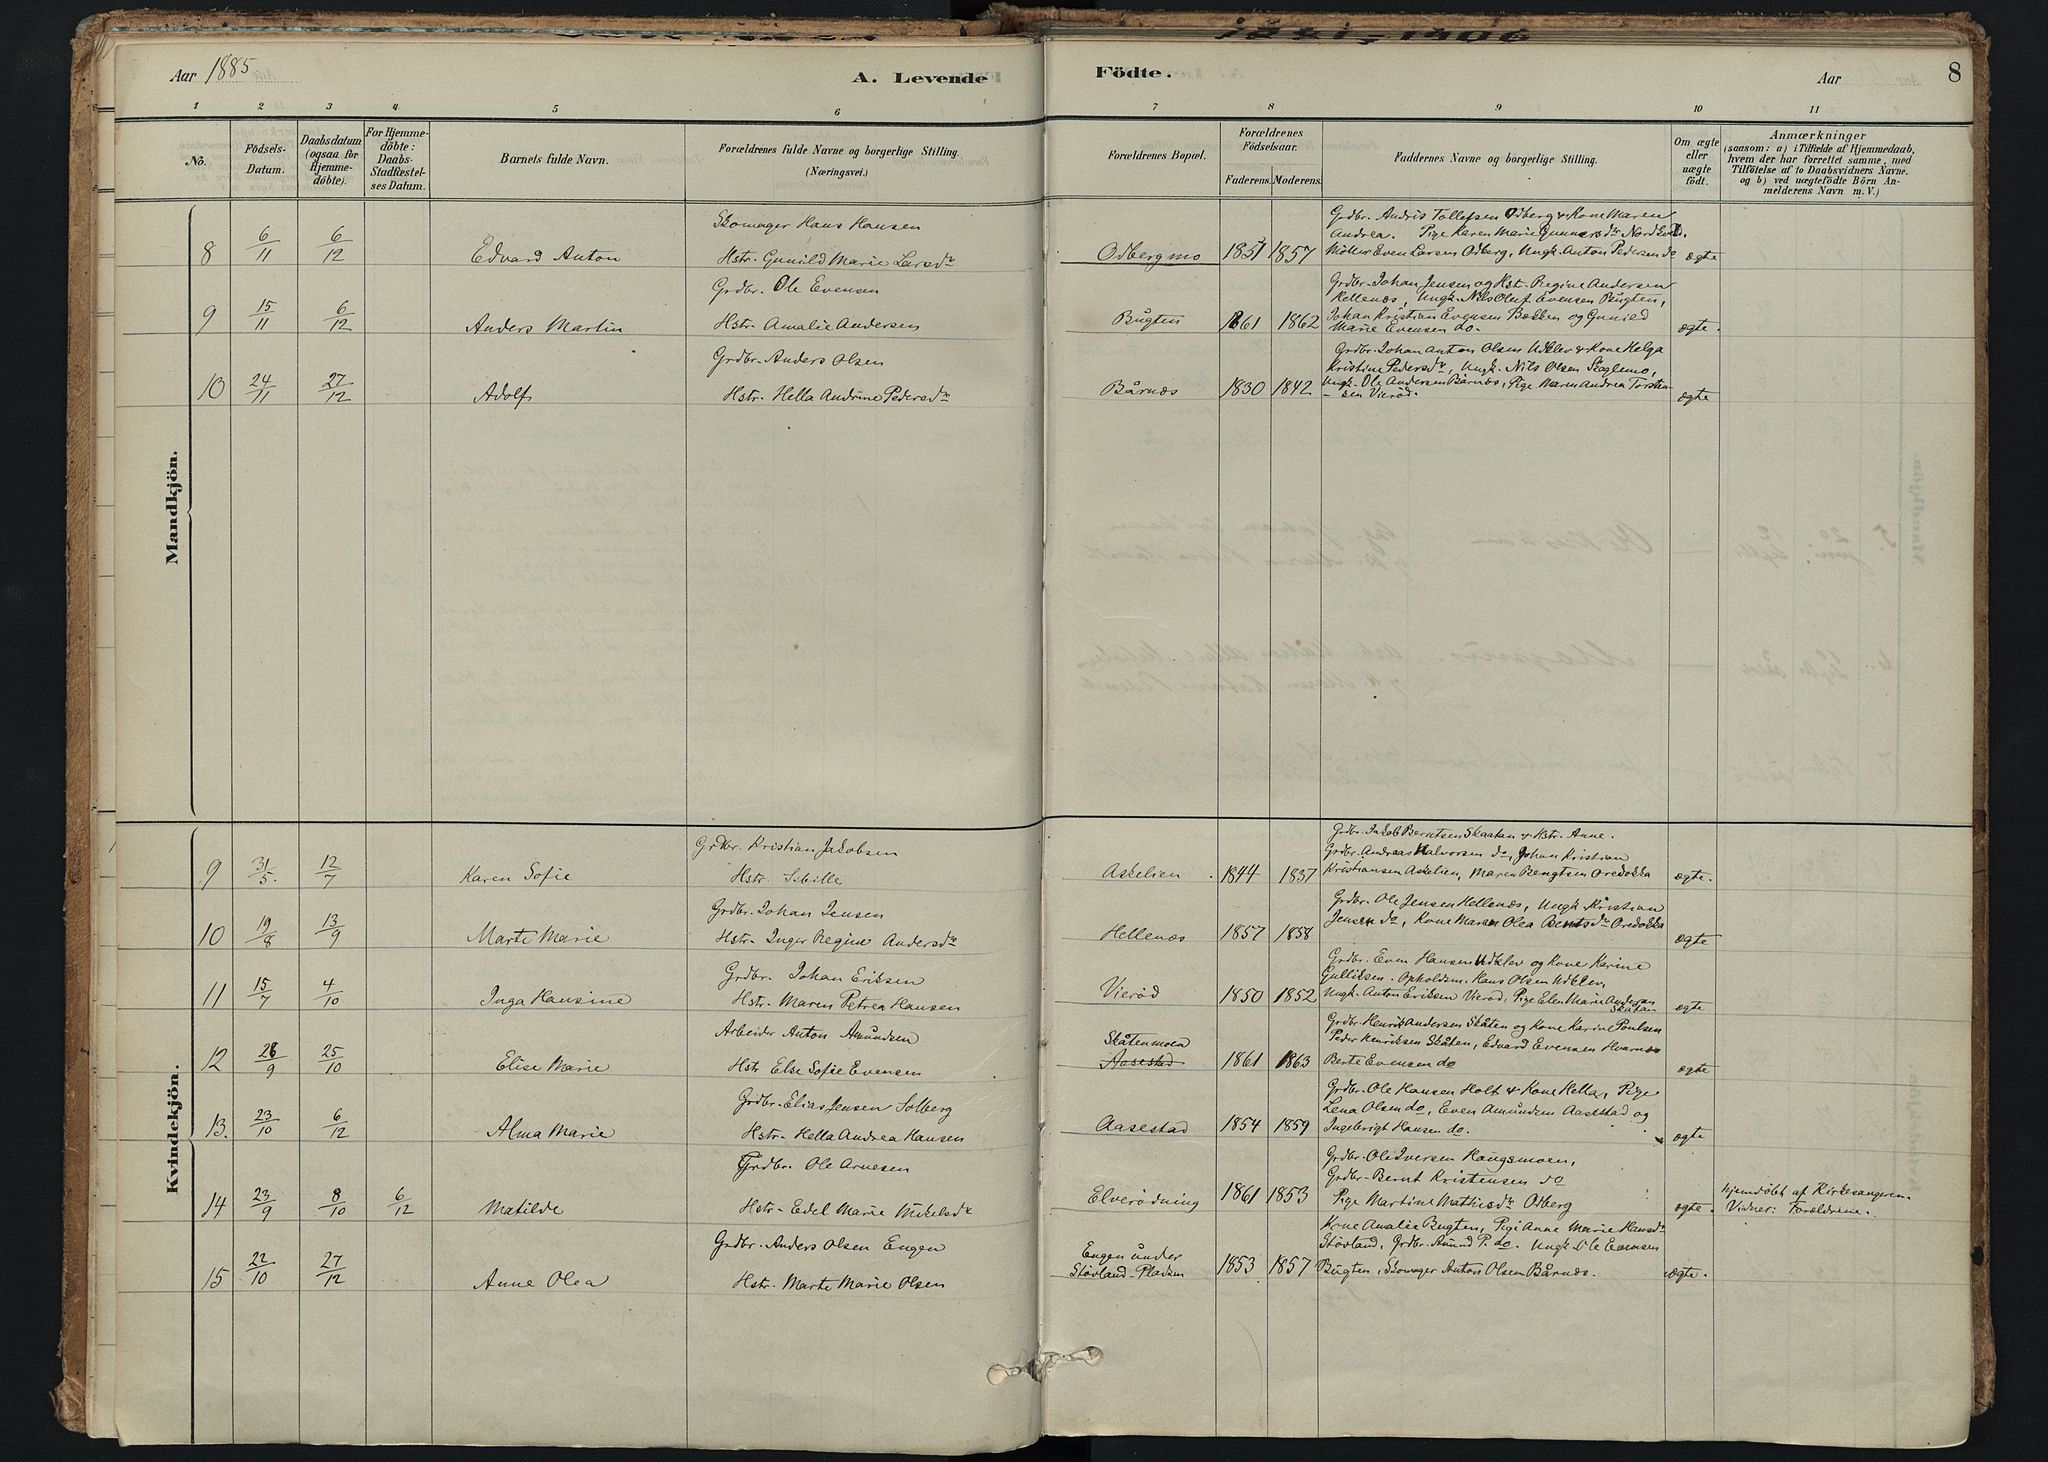 Aar 1885
A. Levende
Födte.
Aar
8
1 2 3 4 5 6 7 8 9 10 11
No.
Födsels-
Datum.
Daabsdatum
(ogsaa for
Hjemme-
döbte).
For Hjemme-
döbte:
Daabs-
Stadfæstel-
ses Datum.
Barnets fulde Navn.
Forældrenes fulde Navne og borgerlige Stilling.
(Næringsvei.)
Forældrenes Bopæl.
Forældrenes
Födselsaar.
Faderens. Moderens.
Faddernes Navne og borgerlige Stilling.
Om ægte
eller
uægte
født.
Anmærkninger
(saasom: a) i Tilfælde af Hjemmedaab,
hvem der har forrettet samme, med
Tilföielse af to Daabsvidners Navne,
og b) ved uægtefödte Börn An-
melderens Navn m. V.)
Mandkjön.
Skomager Hans Hansen
8 6/11 6/12 Edvard Anton Hstr. Gunild Marie Larsdr
Odbergmo 1851 1857
Grdbr. Andris Tollefsen Odberg & Kone Maren
Andrea. Pige Karen Marie Gunnersdr
Möller Even Larsen Odberg, Ungk. Anton Pedersen do ægte
Grdbr. Ole Evensen
9 15/11 6/12 Anders Martin Hstr. Amalie Andersen
Bugten 1861 1862
Grdbr. Johan Jensen og Hst. Regine Andersen
Hellenæs, Ungk. Nils Oluf Evensen Bugten,
Johan Kristian Evensen Bakken og Gunild
Marie Evensen do. ægte.
Grdbr. Anders Olsen
10 24/11 27/12 Adolf Hstr. Hella Andrine Pedersdr
Bårnæs 1830 1842
Grdbr. Johan Anton Olsen Udklev & Kone Helga
Kristine Pedersdr, Ungk. Nils Olsen Skoglemo,
Ungk. Ole Andersen Bårnæs, Pige Maren Andrea Torsten-
sen Vieröd. ægte
Kvindekjön.
Grdbr. Kristian Jakobsen
9 31/5. 12/7 Karen Sofie Hstr. Sibille
Askelien. 1844 1837
Grdbr. Jakob Berntsen Skaatan & Hstr. Anne.
Grdbr. Andreas Halvorsen do, Johan Kristian
Kristiansen Askelien, Maren Bengtsen Oredokka ægte.
Grdbr. Johan Jensen
10 19/8 13/9 Marte Marie Hstr. Inger Regine Andersdr
Hellenæs 1857 1858
Grdbr. Ole Jensen Hellenæs, Ungk. Kristian
Jensen do, Kone Maren Olea Berntsdr Oredokka
ægte
Grdbr. Johan Eriksen
11 15/7 4/10 Inga Hansine Hstr. Maren Petrea Hansen
Vieröd 1850 1852
Grdbr. Even Hansen Udklev og Kone Karine
Gulliksen. Opholdsm. Hans Olsen Udklev,
Ungk. Anton Eriksen Vieröd, Pige Elen Marie Andersen
Skåtan ægte
Arbeider Anton Amundsen
12 26/9 25/10 Elise Marie Hstr Else Sofie Evensen
Skåtenmoen
Aasestad 1861 1863
Grdbr. Henrik Andersen Skåten og Kone Karine Poulsen
Peder Henriksen Skåten, Edvard Evensen Hvarnes
Berte Evensen do ægte
Grdbr. Elias Jensen Solberg
13. 23/10 6/12 Alma Marie Hstr. Hella Andrea Hansen
Aasestad 1854 1859
Grdbr. Ole Hansen Holt & Kone Hella, Pige
Lena Olsen do, Even Amundsen Aasestad og
Ingebrigt Hansen do. ægte
Grdbr. Ole Arnesen
14 23/9 8/10 6/12 Matilde Hstr. Edel Marie Mikelsdr
Elverödning 1861 1853
Grdbr. Ole Iversen Haugsmoen,
Grdbr. Bernt Kristensen do
Pige Martine Mathisdr Odberg ægte.
Hjemdöbt af Kirkesangeren
Vidner: Forældrene.
Grdbr. Anders Olsen Engen
15 22/10 27/12 Anne Olea Hstr. Marte Marie Olsen
Engen under
Stövland-Pladsen 1853 1857
Kone Amalie Bugten, Pige Anne Marie Hansdr
Stövland, Grdbr. Amund P. do. Ungk Ole Evensen
Bugten, Skomager Anton Olsen Bårnæs. ægte.